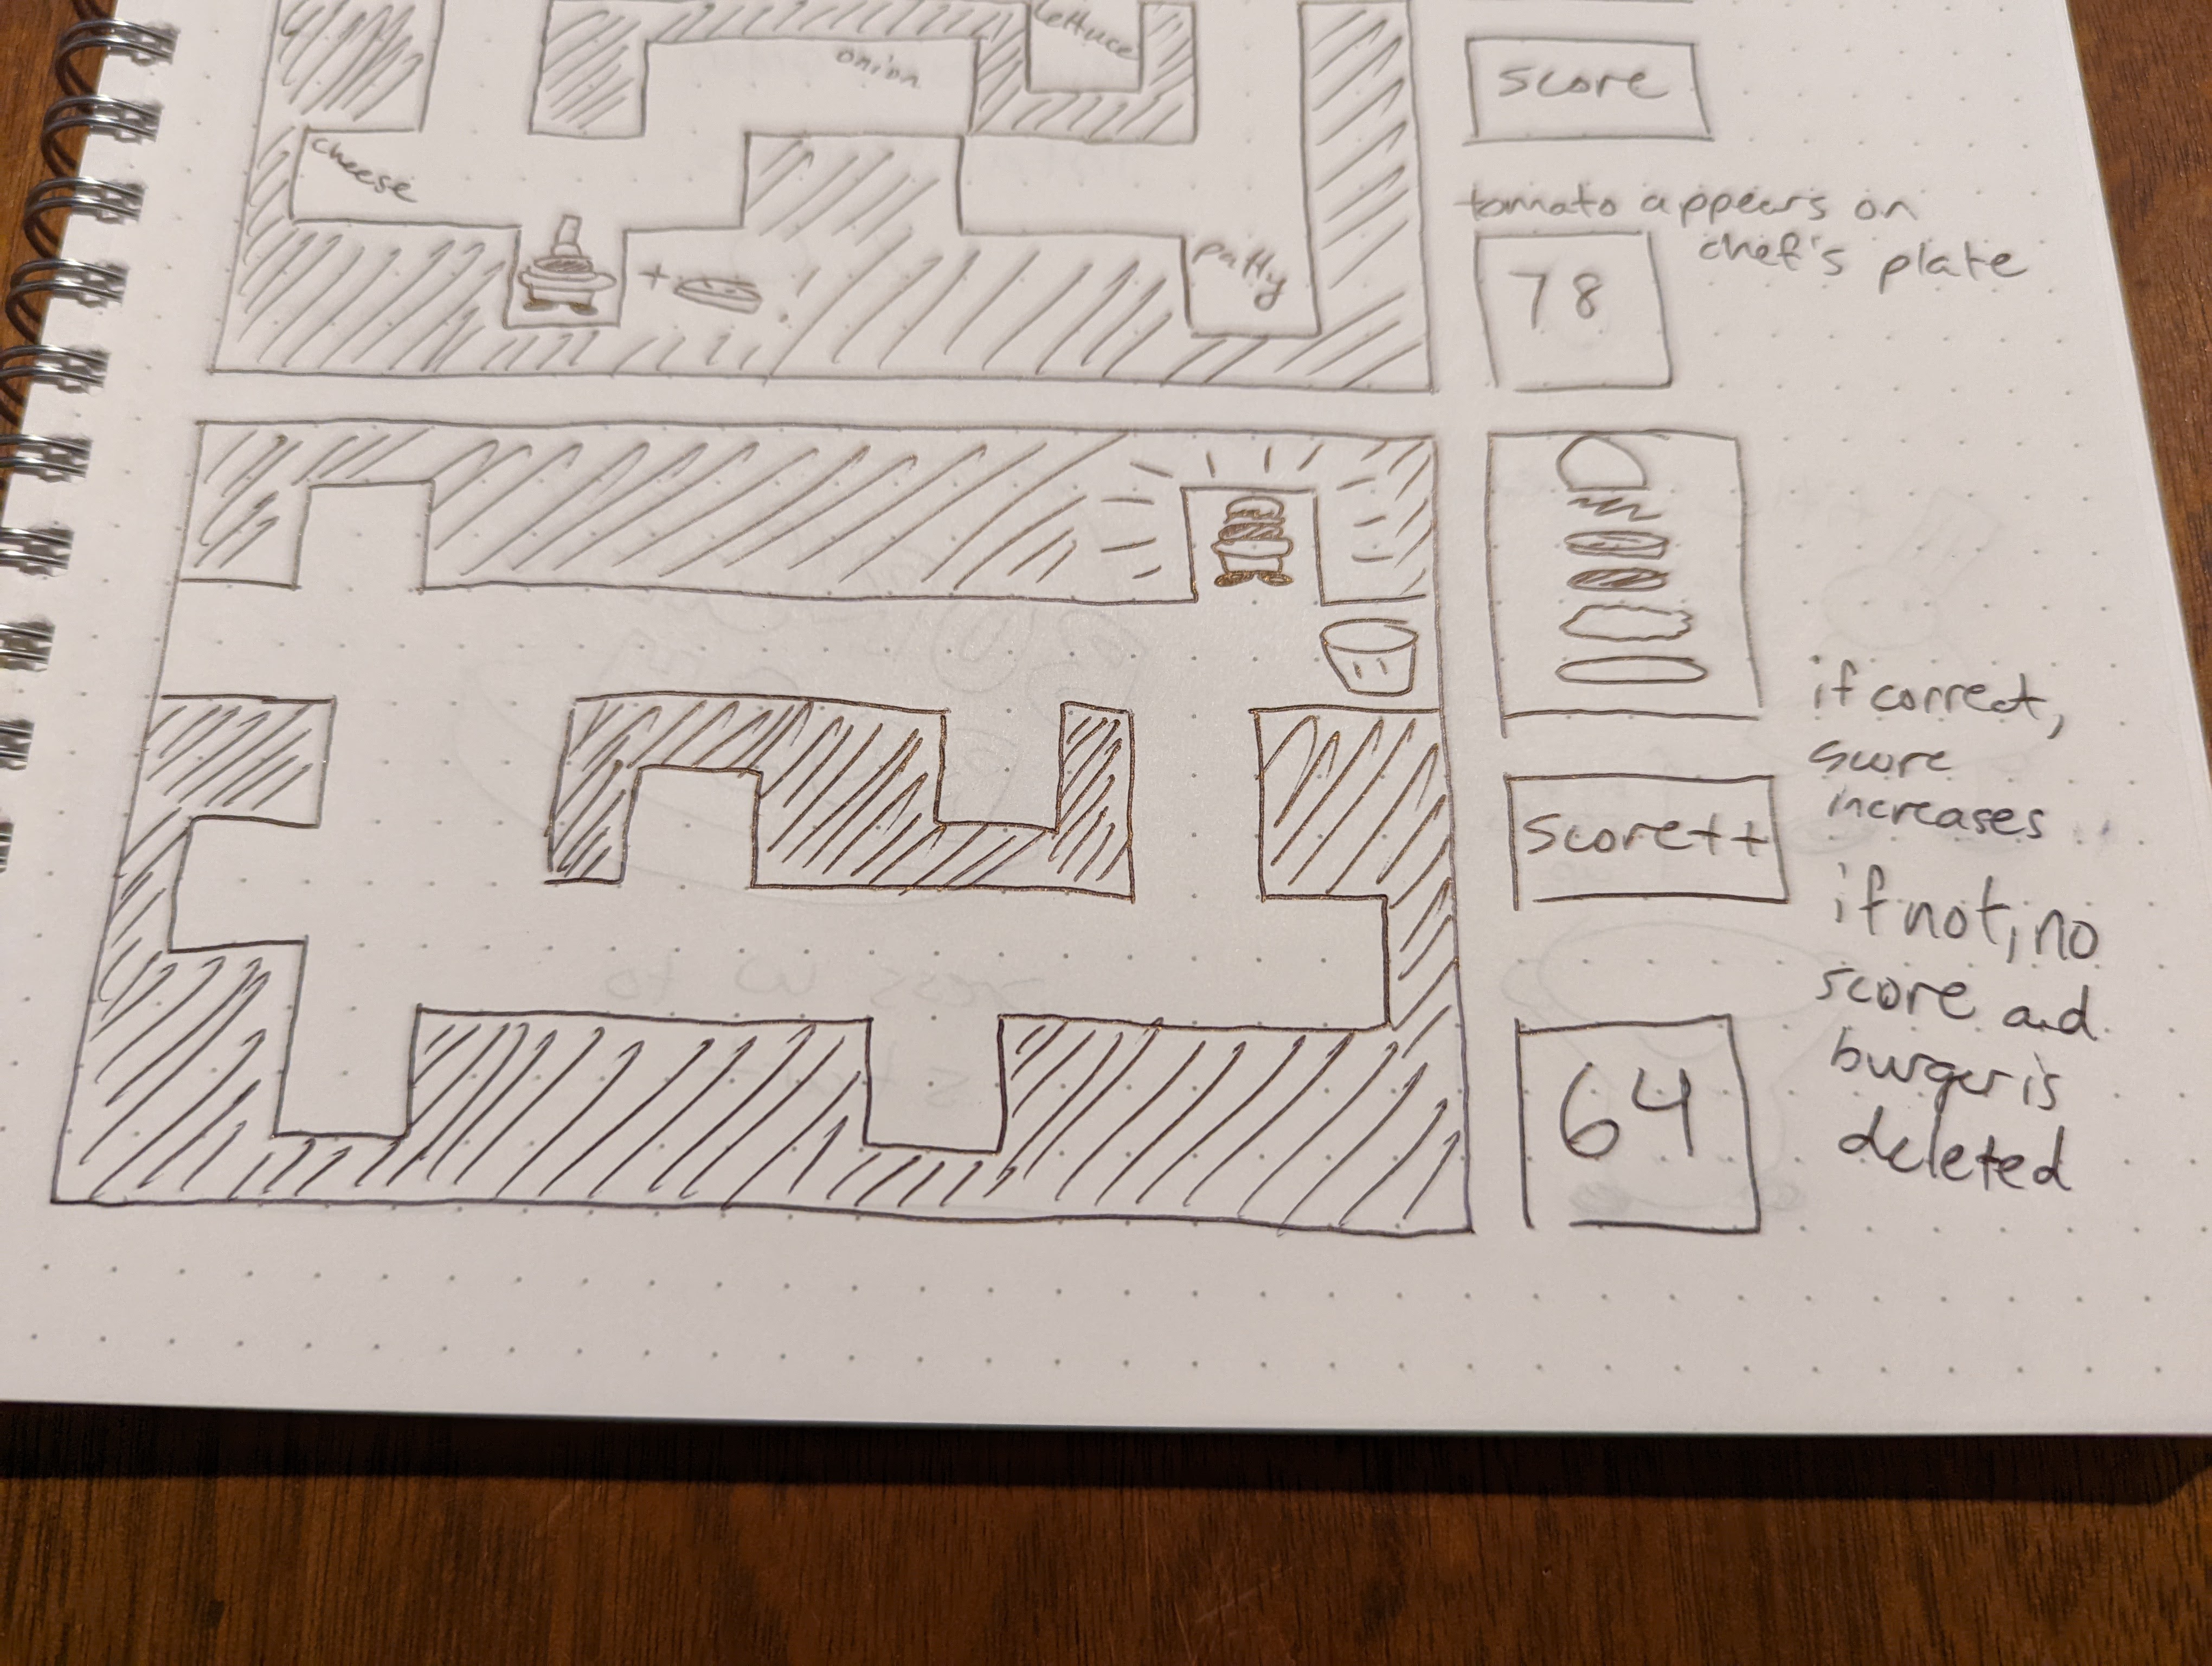 lettuce
onion
score
cheese
tomato appears on
chef's plate
patty
+
!
78
if correct,
score
increases
score++
if not, no
score and
burger is
deleted
64